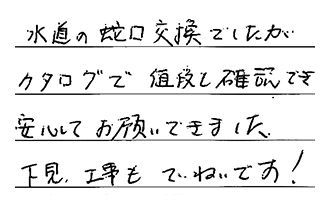 水道の蛇口交換でしたが
カタログで値段も確認でき
安心してお願いできました.
下見、工事も ていねいです！